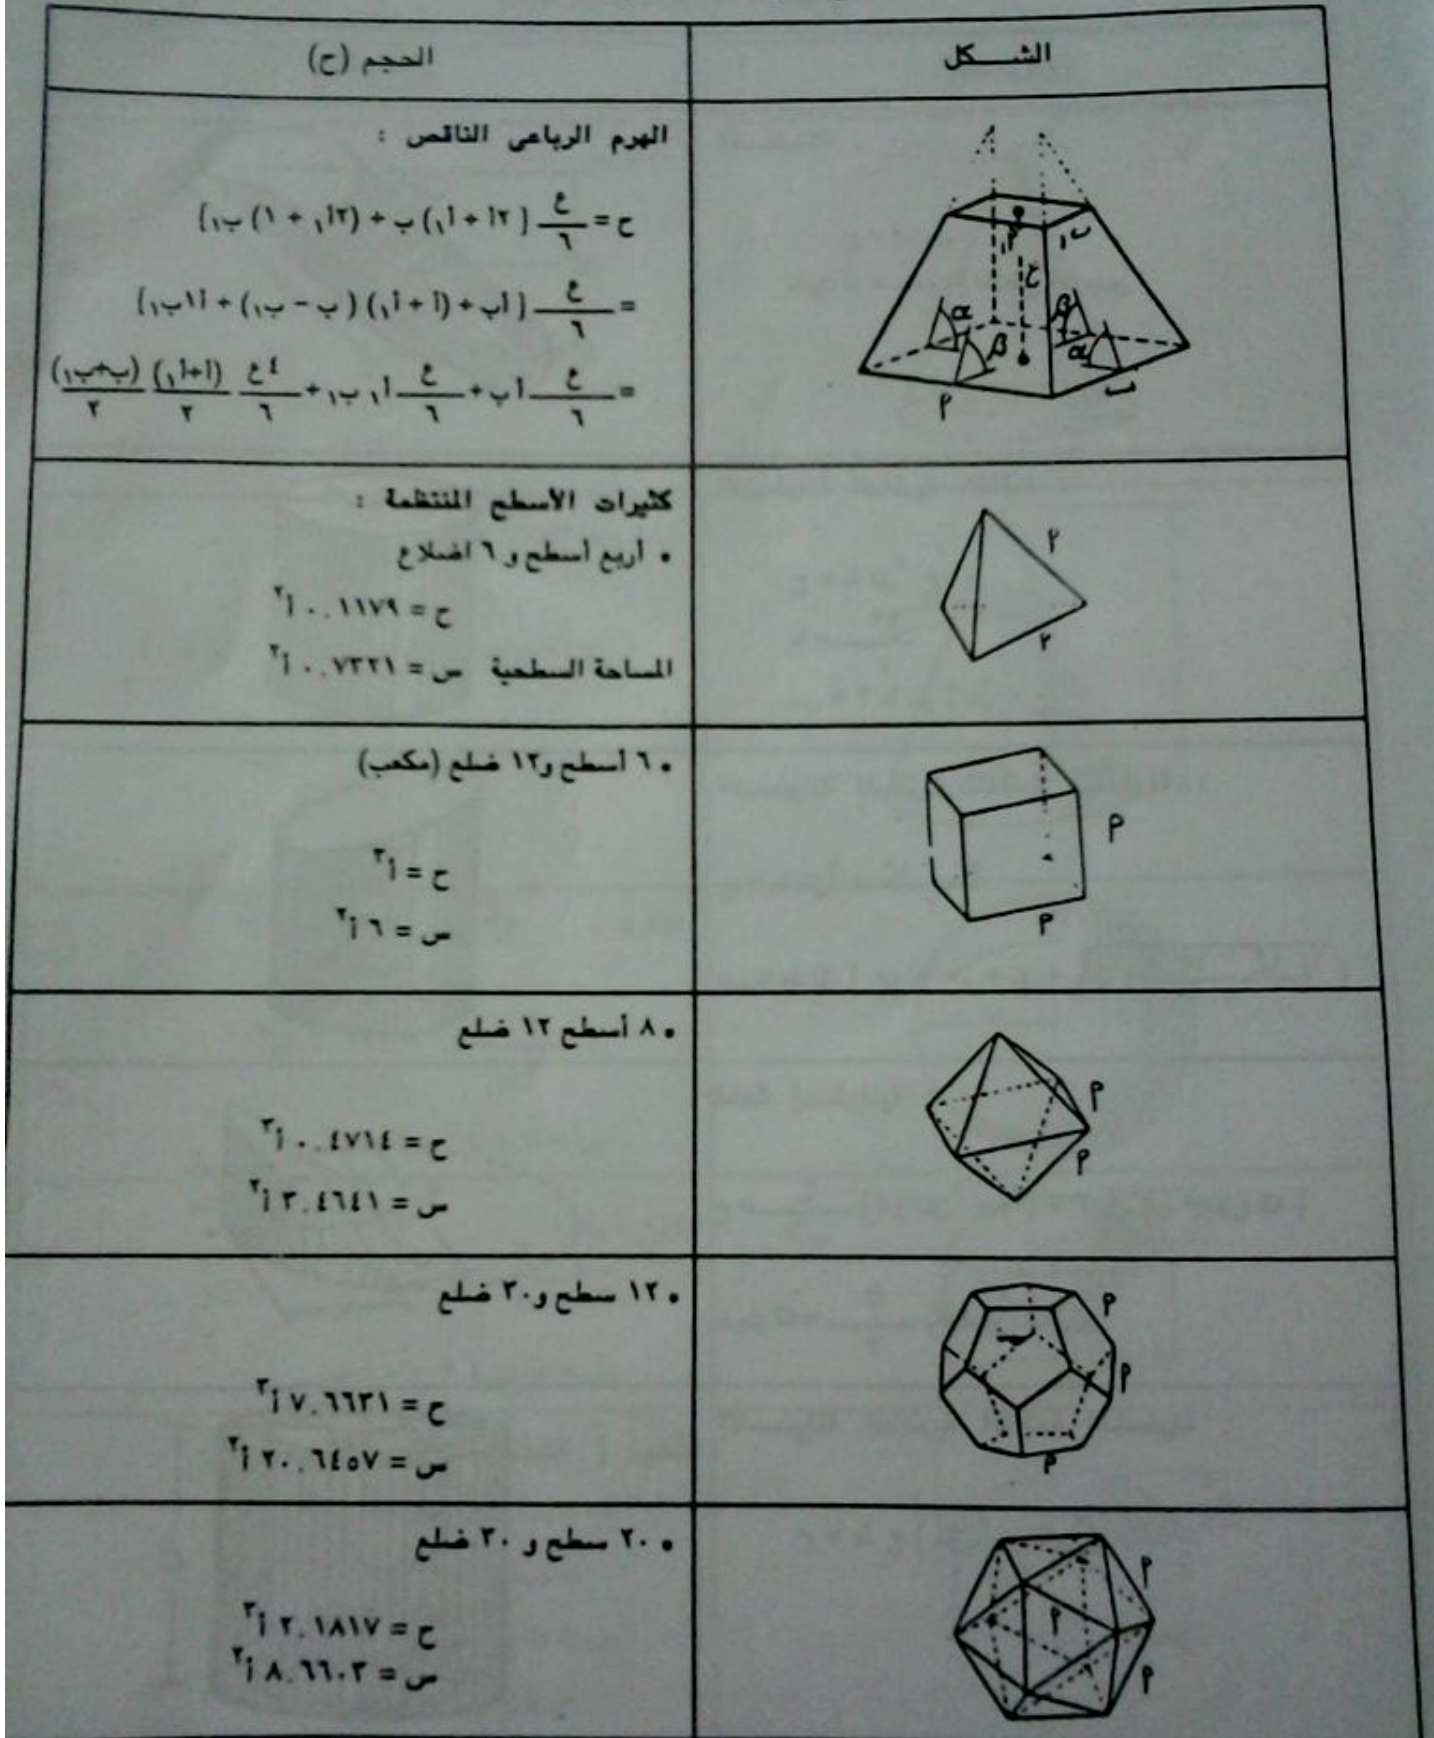 الشكل
الحجم (ح)
الهرم الرباعى الناقص :
ح = ع/٦ [ (٢أ + أ١) ب + (٢أ١ + ١) ب١]
= ع/٦ [ أب + (أ + أ١) ( ب - ب١) + أ١ب١]
= ع/٦ أب + ع/٦ أ١ ب١ + ٤ع/٦ (أ+أ١)/٢ (ب+ب١)/٢
أ١ ب١
ع
α β β α
أ ب
كثيرات الأسطح المنتظمة :
• أربع أسطح و ٦ اضلاع
ح = ٠.١١٧٩ أ٣
المساحة السطحية س = ٠.٧٣٢١ أ٢
أ
أ
• ٦ أسطح و١٢ ضلع (مكعب)
ح = أ٣
س = ٦ أ٢
أ
أ
• ٨ أسطح ١٢ ضلع
ح = ٠.٤٧١٤ أ٣
س = ٣.٤٦٤١ أ٢
أ
أ
• ١٢ سطح و٣٠ ضلع
ح = ٧.٦٦٣١ أ٣
س = ٢٠.٦٤٥٧ أ٢
أ
أ
أ
• ٢٠ سطح و ٣٠ ضلع
ح = ٢.١٨١٧ أ٣
س = ٨.٦٦٠٣ أ٢
أ
أ
أ